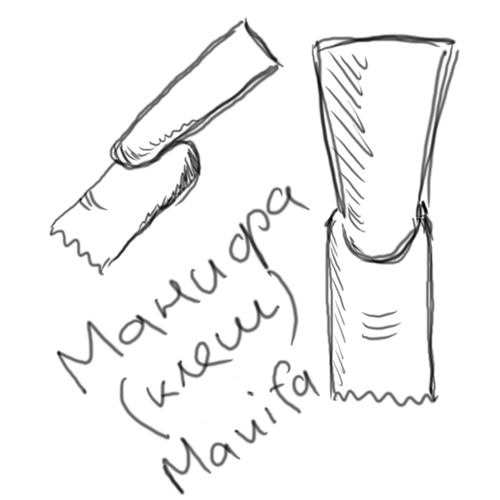 Манифа
(клеш)
Manifa